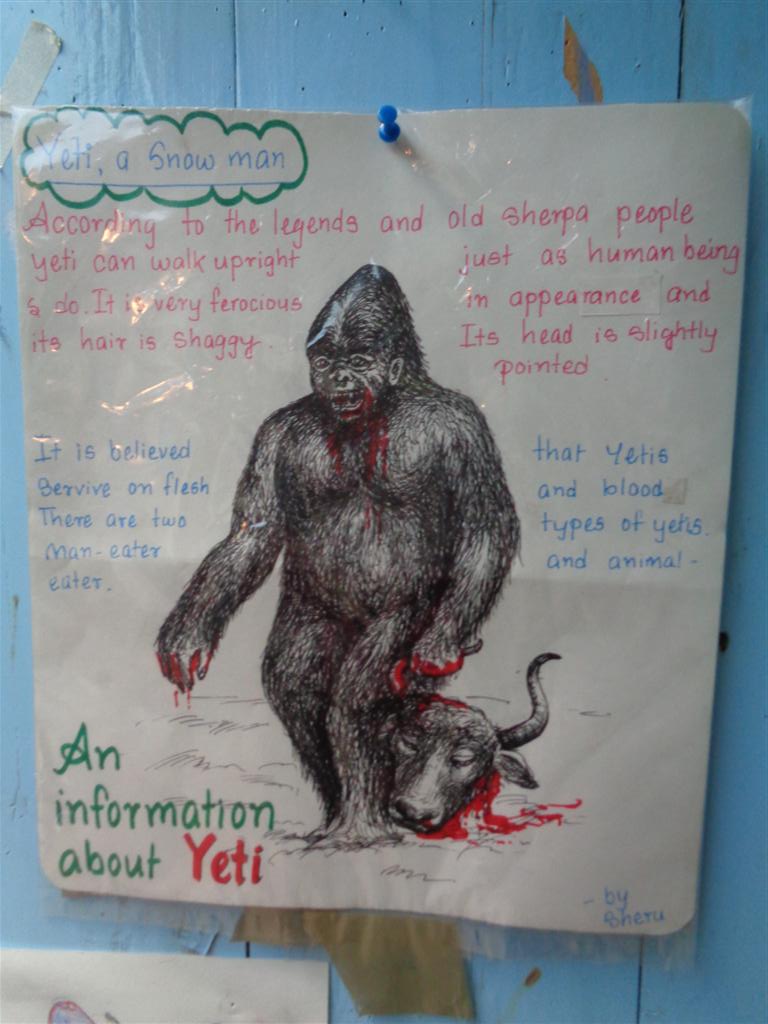 Yeti, a Snow man
According to the legends and old sherpa people
yeti can walk upright just as human being
& do. It is very ferocious in appearance and
its hair is shaggy. Its head is slightly
pointed
It is believed that Yetis
Servive on flesh and blood
There are two types of yetis.
man-eater and animal-
eater.
An
information
about Yeti
- by
Sheru